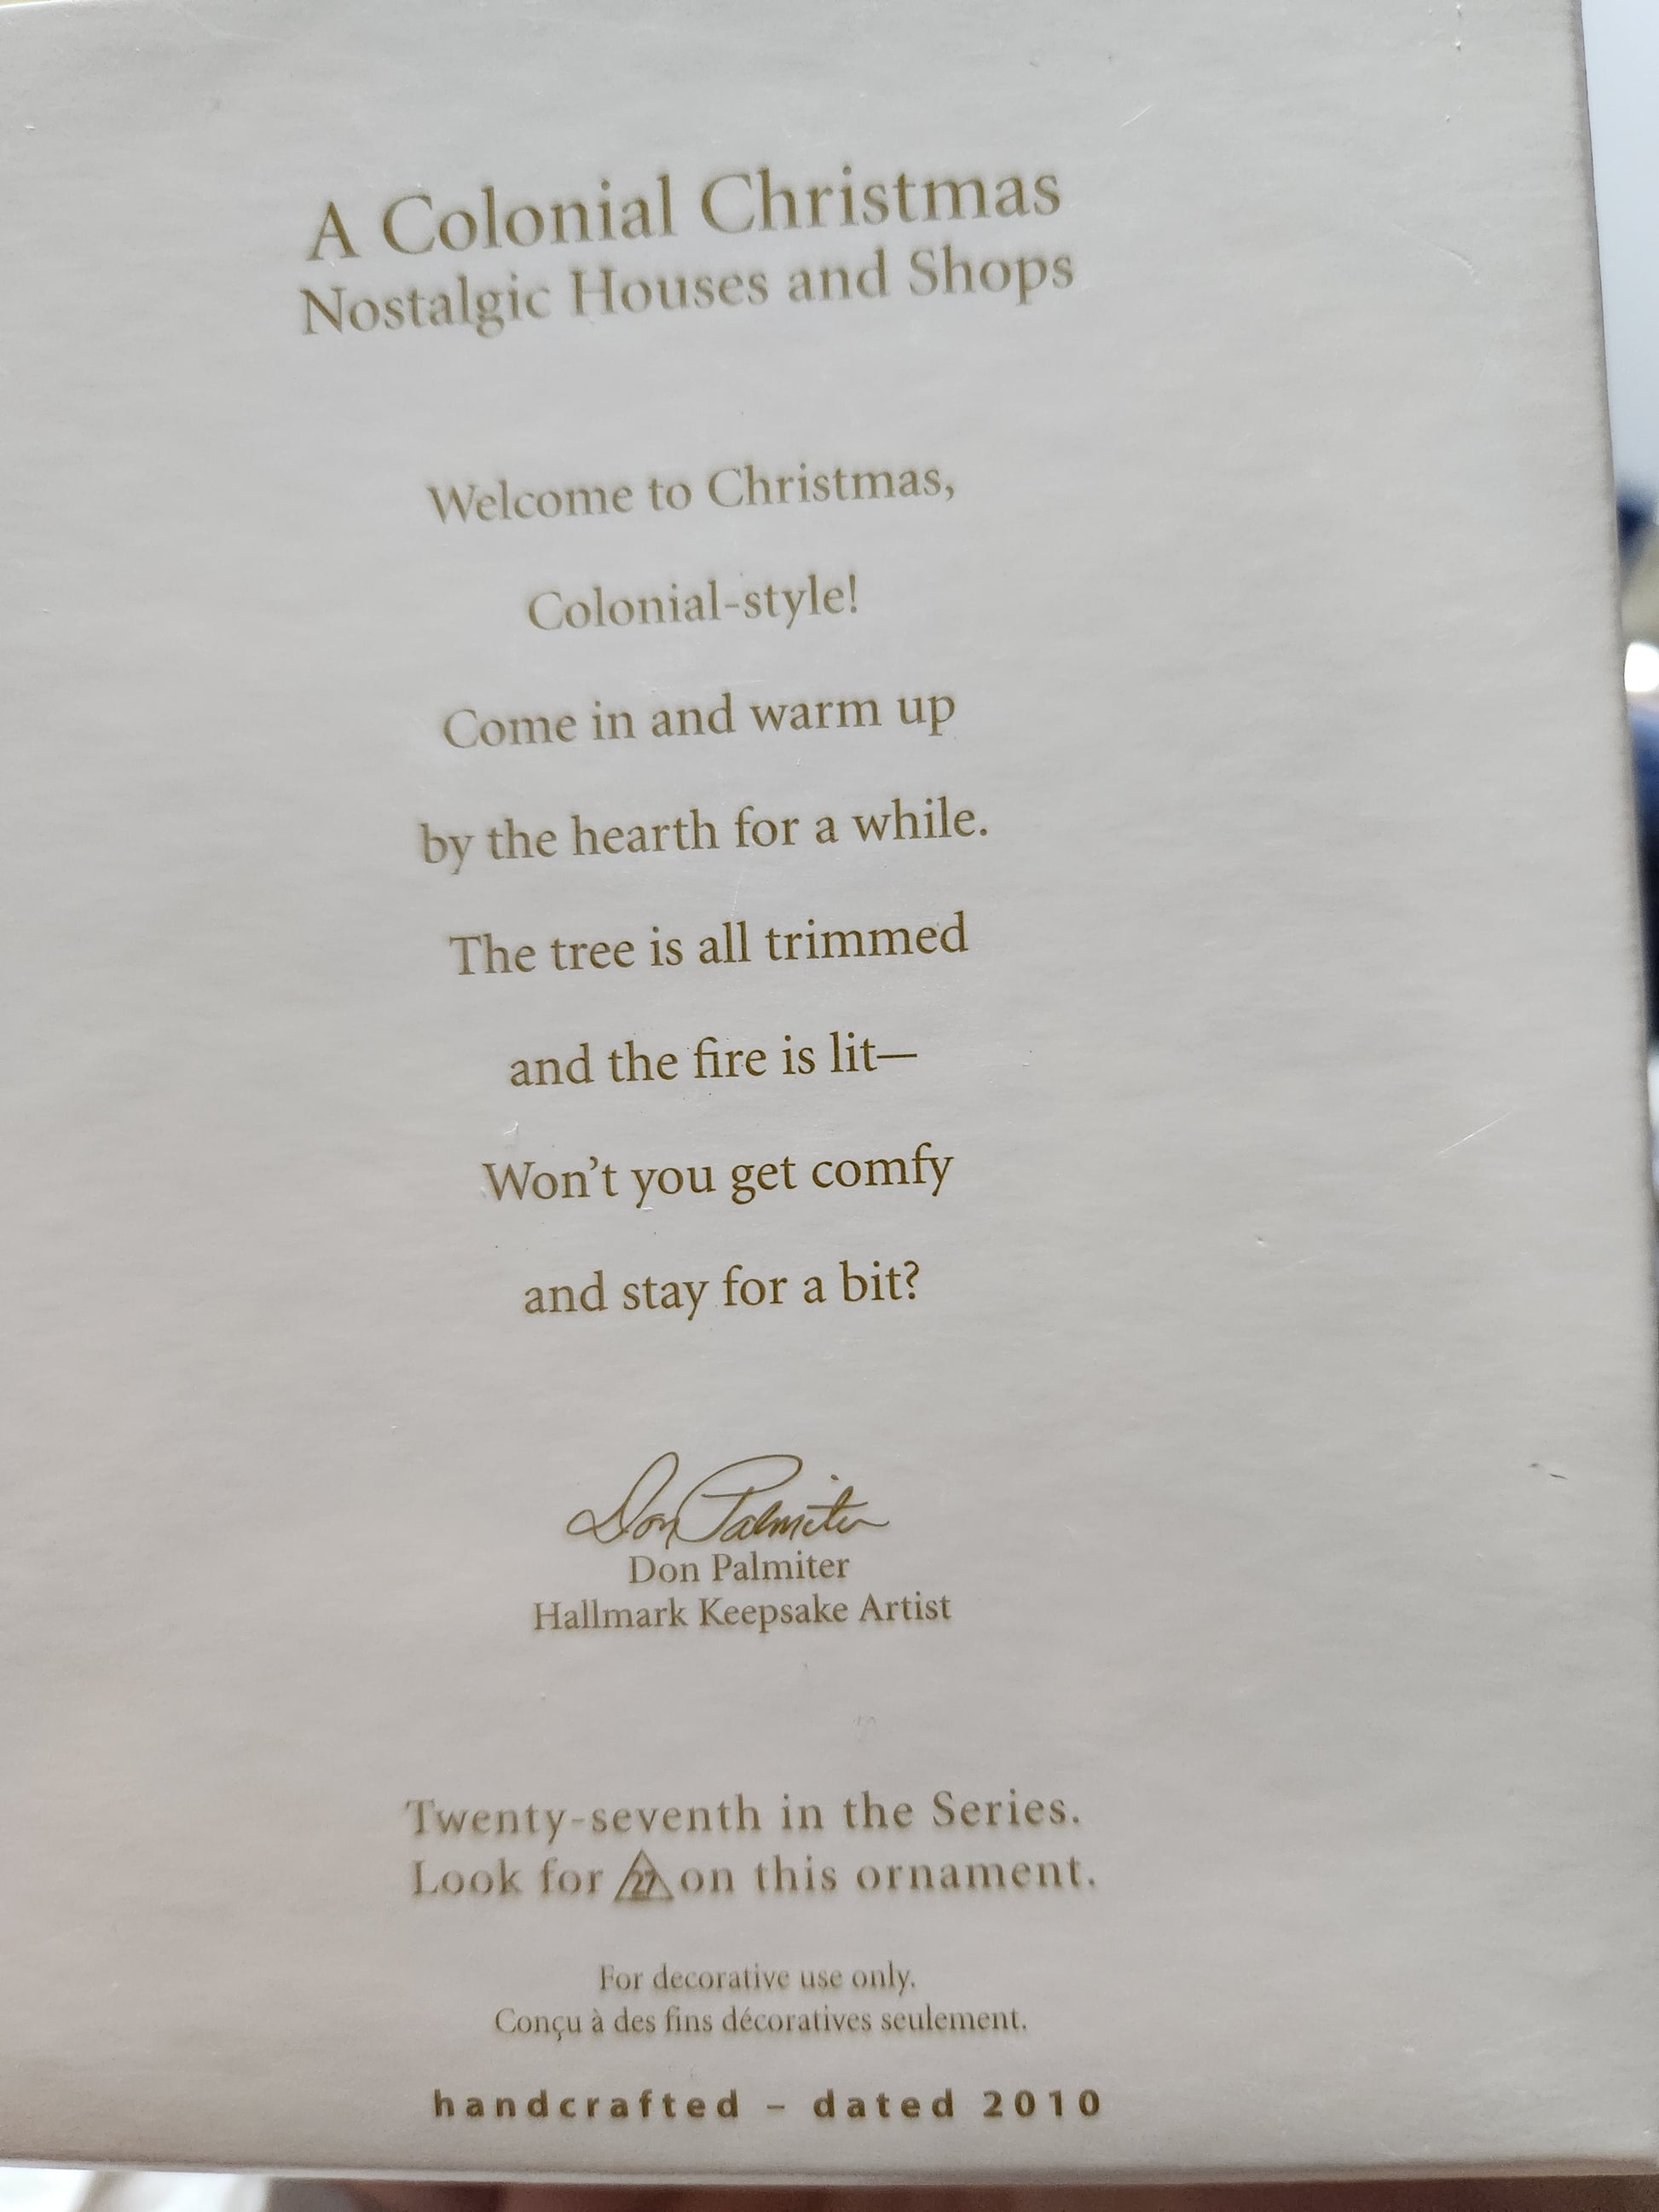 A Colonial Christmas
Nostalgic Houses and Shops
Welcome to Christmas,
Colonial-style!
Come in and warm up
by the hearth for a while.
The tree is all trimmed
and the fire is lit—
Won't you get comfy
and stay for a bit?
Don Palmiter
Don Palmiter
Hallmark Keepsake Artist
Twenty-seventh in the Series.
Look for 27 on this ornament.
For decorative use only.
Conçu à des fins décoratives seulement.
handcrafted – dated 2010